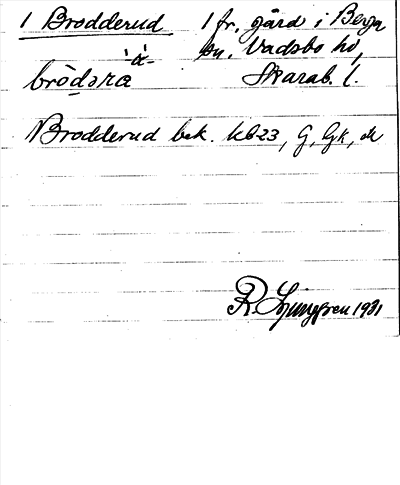 1 Brodderud 1 fr. gård i Berga
sn. Vadsbo hd,
bròdəra `-á- Skarab. l.
Brodderud bek. kb23, G, Gk,
R. Ljunggren 1931